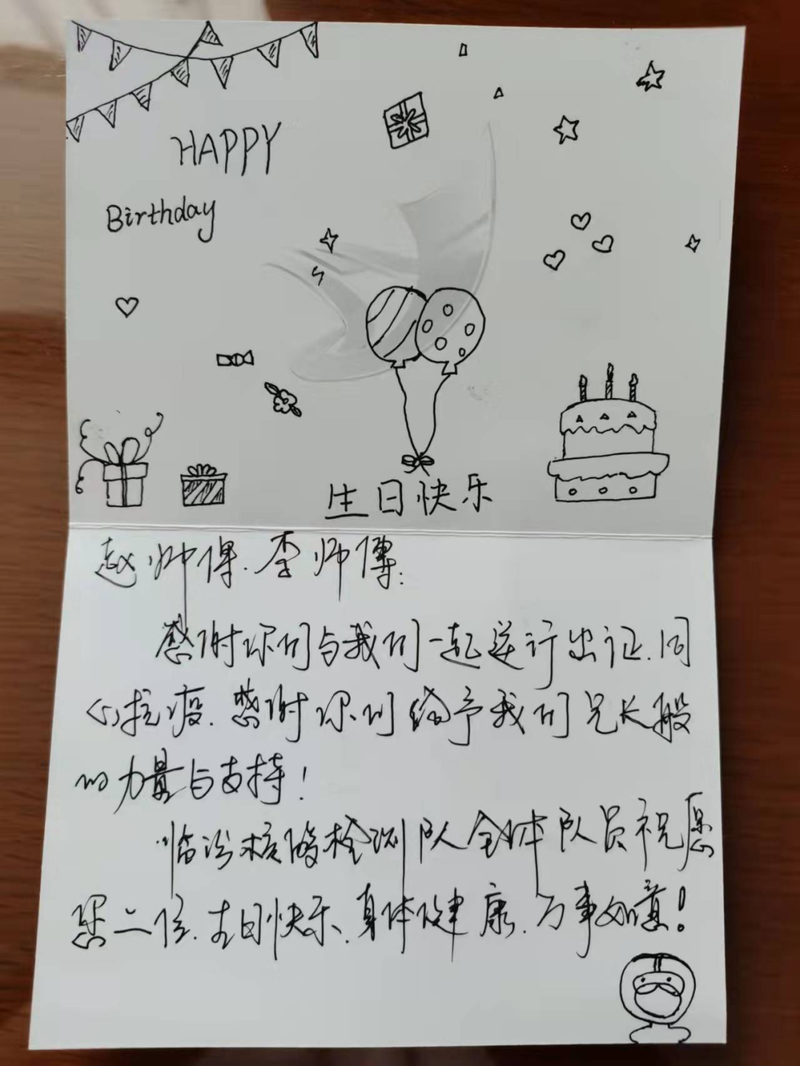 HAPPY
Birthday
生日快乐
赵师傅、李师傅：
感谢你们与我们一起逆行出征、同
心抗疫、感谢你们给予我们兄长般
的力量与支持！
临汾核酸检测队全体队员祝愿
您二位、生日快乐、身体健康、万事如意！